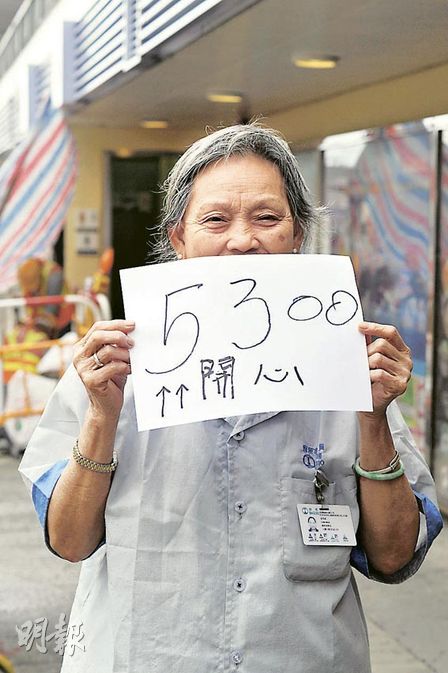 5300
↑↑開心
明報